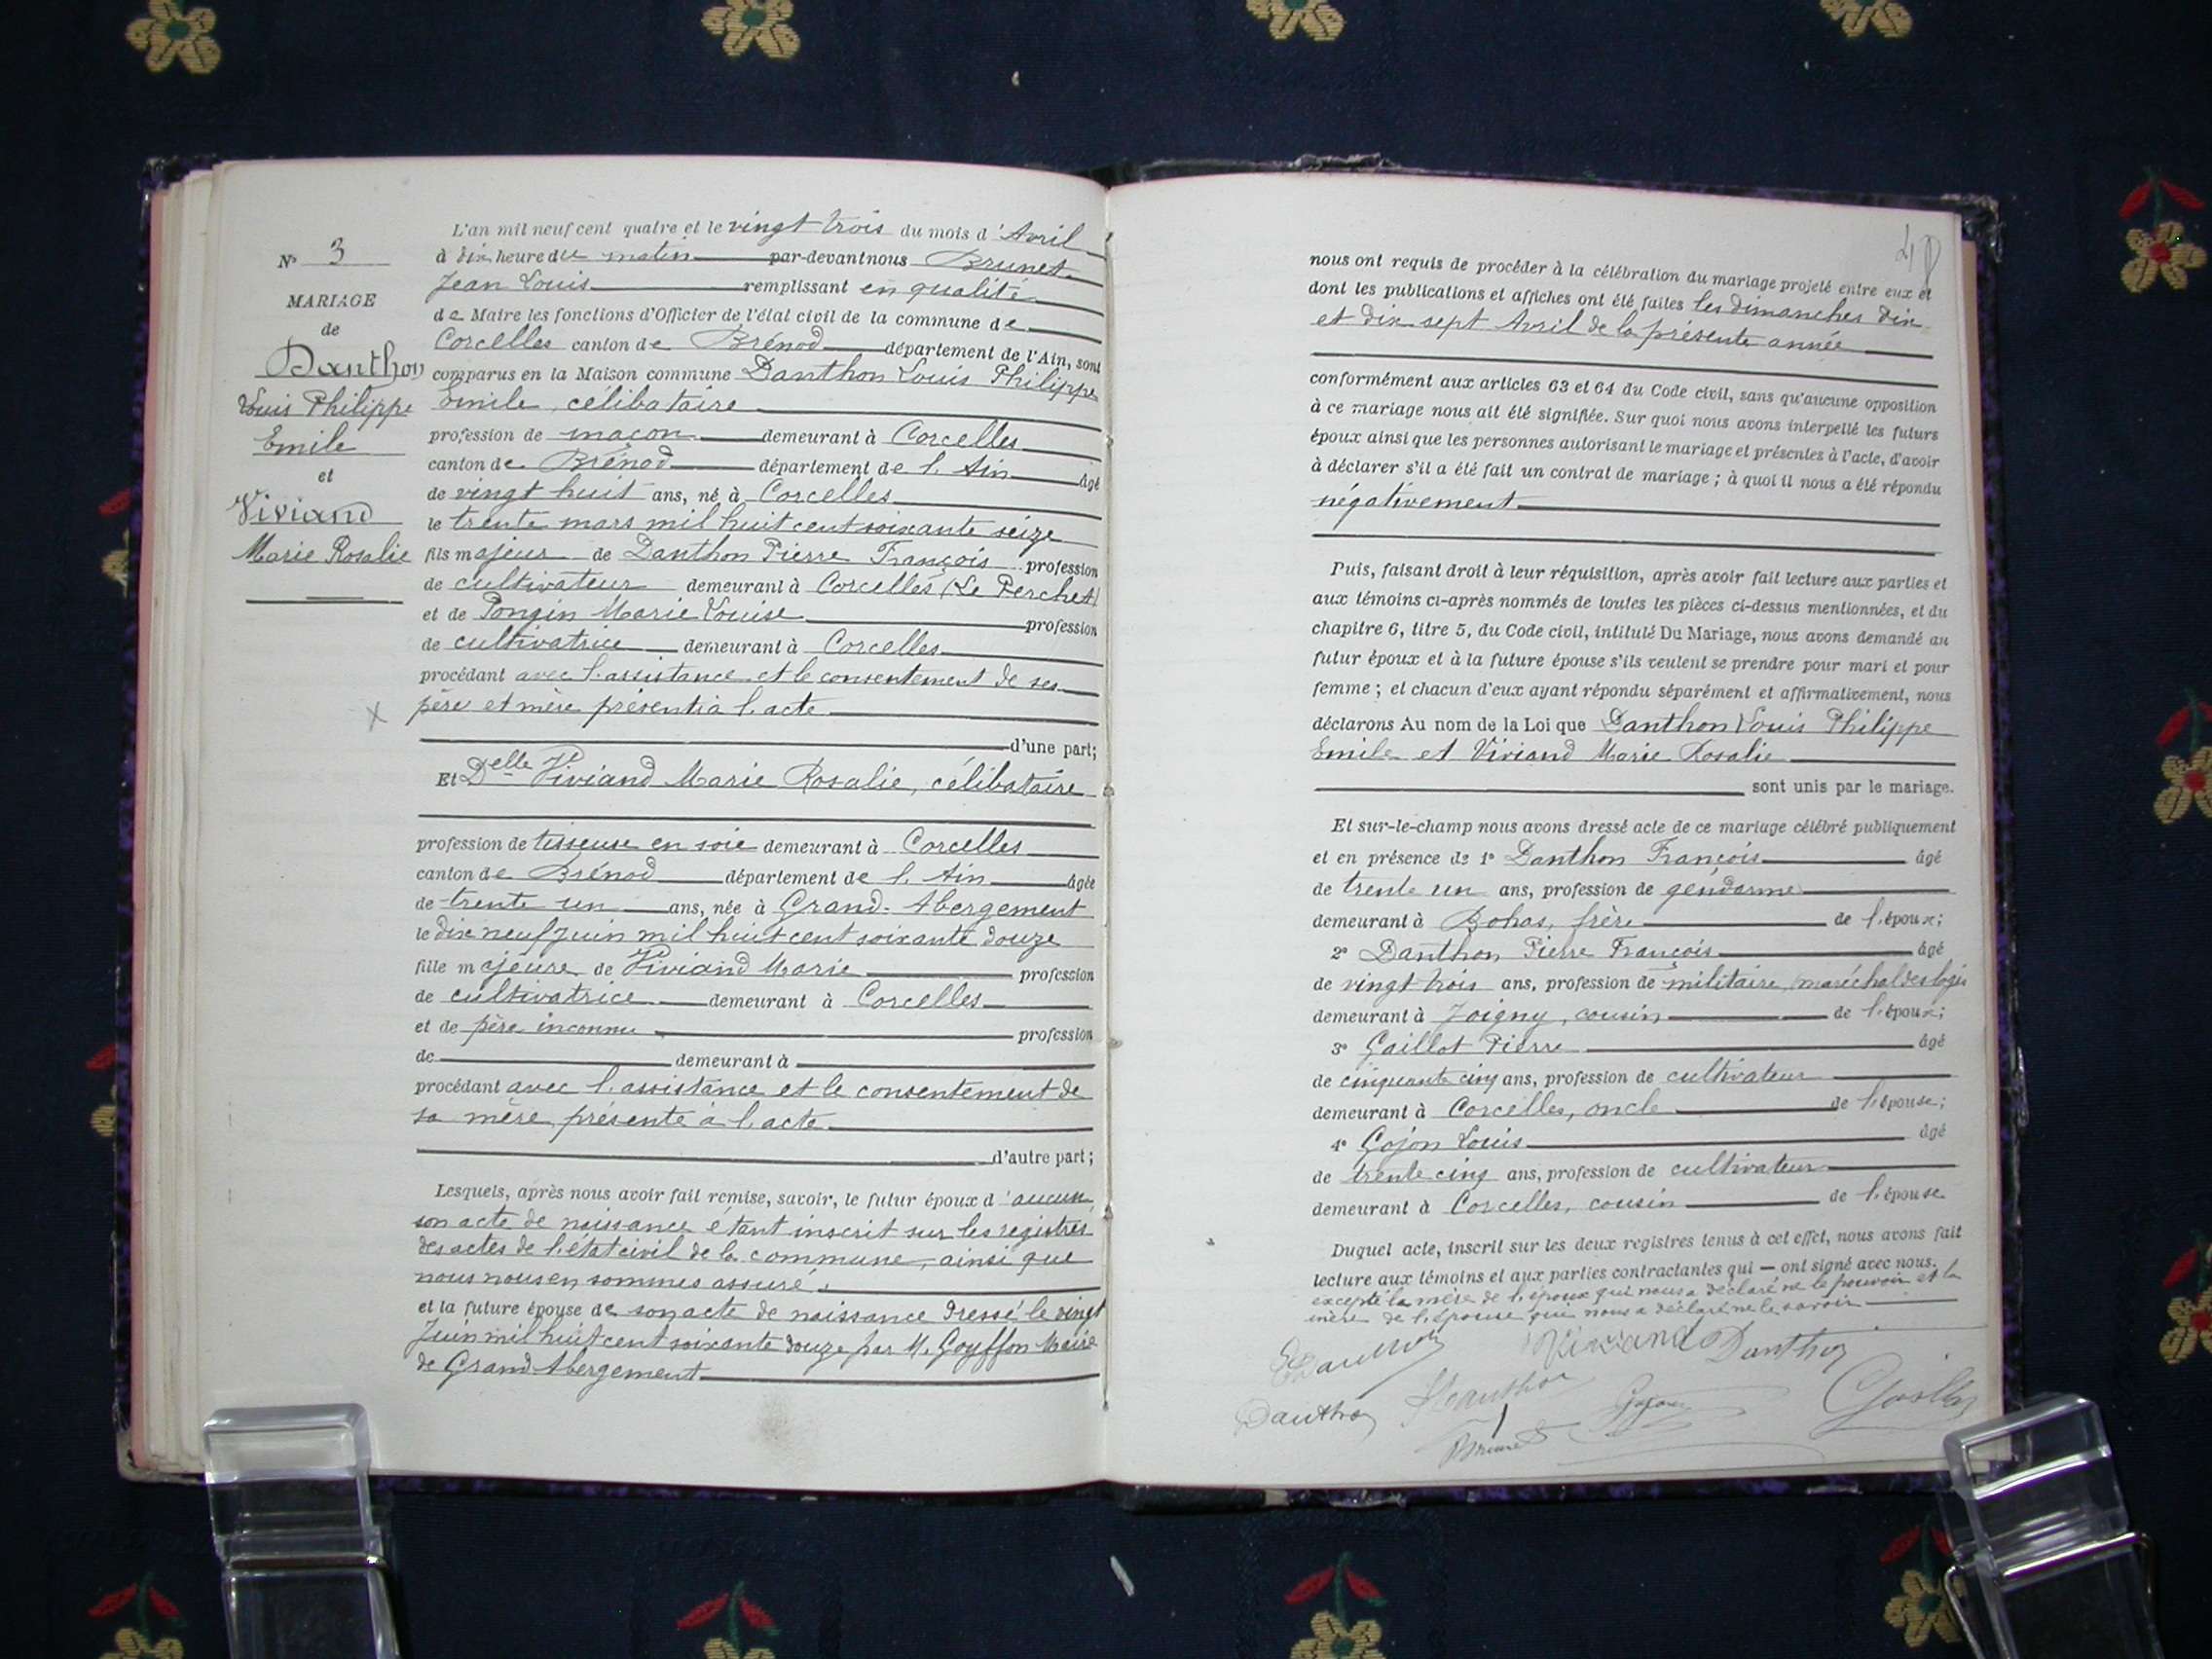 N° 3
MARIAGE
de
Danthon
Louis Philippe
Emile
et
Viviand
Marie Rosalie
L'an mil neuf cent quatre et le vingt trois du mois d'Avril
à dix heure du matin par-devant nous Brunet
Jean Louis remplissant en qualité
de Maire les fonctions d'Officier de l'état civil de la commune de
Corcelles canton de Brénod département de l'Ain, sont
comparus en la Maison commune Danthon Louis Philippe
Emile, célibataire
profession de maçon demeurant à Corcelles
canton de Brénod département de l'Ain âgé
de vingt huit ans, né à Corcelles
le trente mars mil huit cent soixante seize
fils majeur de Danthon Pierre François profession
de cultivateur demeurant à Corcelles (Le Perchet)
et de Pongin Marie Louise profession
de cultivatrice demeurant à Corcelles
procédant avec l'assistance et le consentement de ses
X père et mère présents à l'acte
d'une part;
Et Delle Viviand Marie Rosalie, célibataire
profession de tisseuse en soie demeurant à Corcelles
canton de Brénod département de l'Ain âgée
de trente un ans, née à Grand-Abergement
le dix neuf juin mil huit cent soixante douze
fille majeure de Viviand Marie profession
de cultivatrice demeurant à Corcelles
et de père inconnu profession
de demeurant à
procédant avec l'assistance et le consentement de
sa mère, présente à l'acte
d'autre part;
Lesquels, après nous avoir fait remise, savoir, le futur époux d'aucun
son acte de naissance étant inscrit sur les registres
des actes de l'état civil de la commune, ainsi que
nous nous en sommes assuré.
et la future épouse de son acte de naissance dressé le vingt
Juin mil huit cent soixante douze par M. Goyffon Maire
de Grand Abergement
48
nous ont requis de procéder à la célébration du mariage projeté entre eux et
dont les publications et affiches ont été faites les dimanches dix
et dix sept Avril de la présente année
conformément aux articles 63 et 64 du Code civil, sans qu'aucune opposition
à ce mariage nous ait été signifiée. Sur quoi nous avons interpellé les futurs
époux ainsi que les personnes autorisant le mariage et présentes à l'acte, d'avoir
à déclarer s'il a été fait un contrat de mariage; à quoi il nous a été répondu
négativement
Puis, faisant droit à leur réquisition, après avoir fait lecture aux parties et
aux témoins ci-après nommés de toutes les pièces ci-dessus mentionnées, et du
chapitre 6, titre 5, du Code civil, intitulé Du Mariage, nous avons demandé au
futur époux et à la future épouse s'ils veulent se prendre pour mari et pour
femme; et chacun d'eux ayant répondu séparément et affirmativement, nous
déclarons Au nom de la Loi que Danthon Louis Philippe
Emile et Viviand Marie Rosalie
sont unis par le mariage.
Et sur-le-champ nous avons dressé acte de ce mariage célébré publiquement
et en présence de 1° Danthon François âgé
de trente un ans, profession de gendarme
demeurant à Bohas, frère de l'époux;
2° Danthon Pierre François âgé
de vingt trois ans, profession de militaire, maréchal des logis
demeurant à Joigny, cousin de l'époux;
3° Gaillot Pierre âgé
de cinquante cinq ans, profession de cultivateur
demeurant à Corcelles, oncle de l'épouse;
4° Gojon Louis âgé
de trente cinq ans, profession de cultivateur
demeurant à Corcelles, cousin de l'épouse
Duquel acte, inscrit sur les deux registres tenus à cet effet, nous avons fait
lecture aux témoins et aux parties contractantes qui — ont signé avec nous.
excepté la mère de l'époux qui nous a déclaré ne le pouvoir et la
mère de l'épouse qui nous a déclaré ne le savoir
Danthon Viviand Danthon
Danthon Danthon Gojon
Brunet